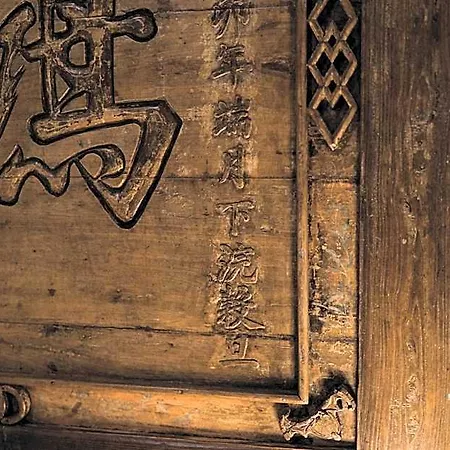 卯年端月下浣穀旦